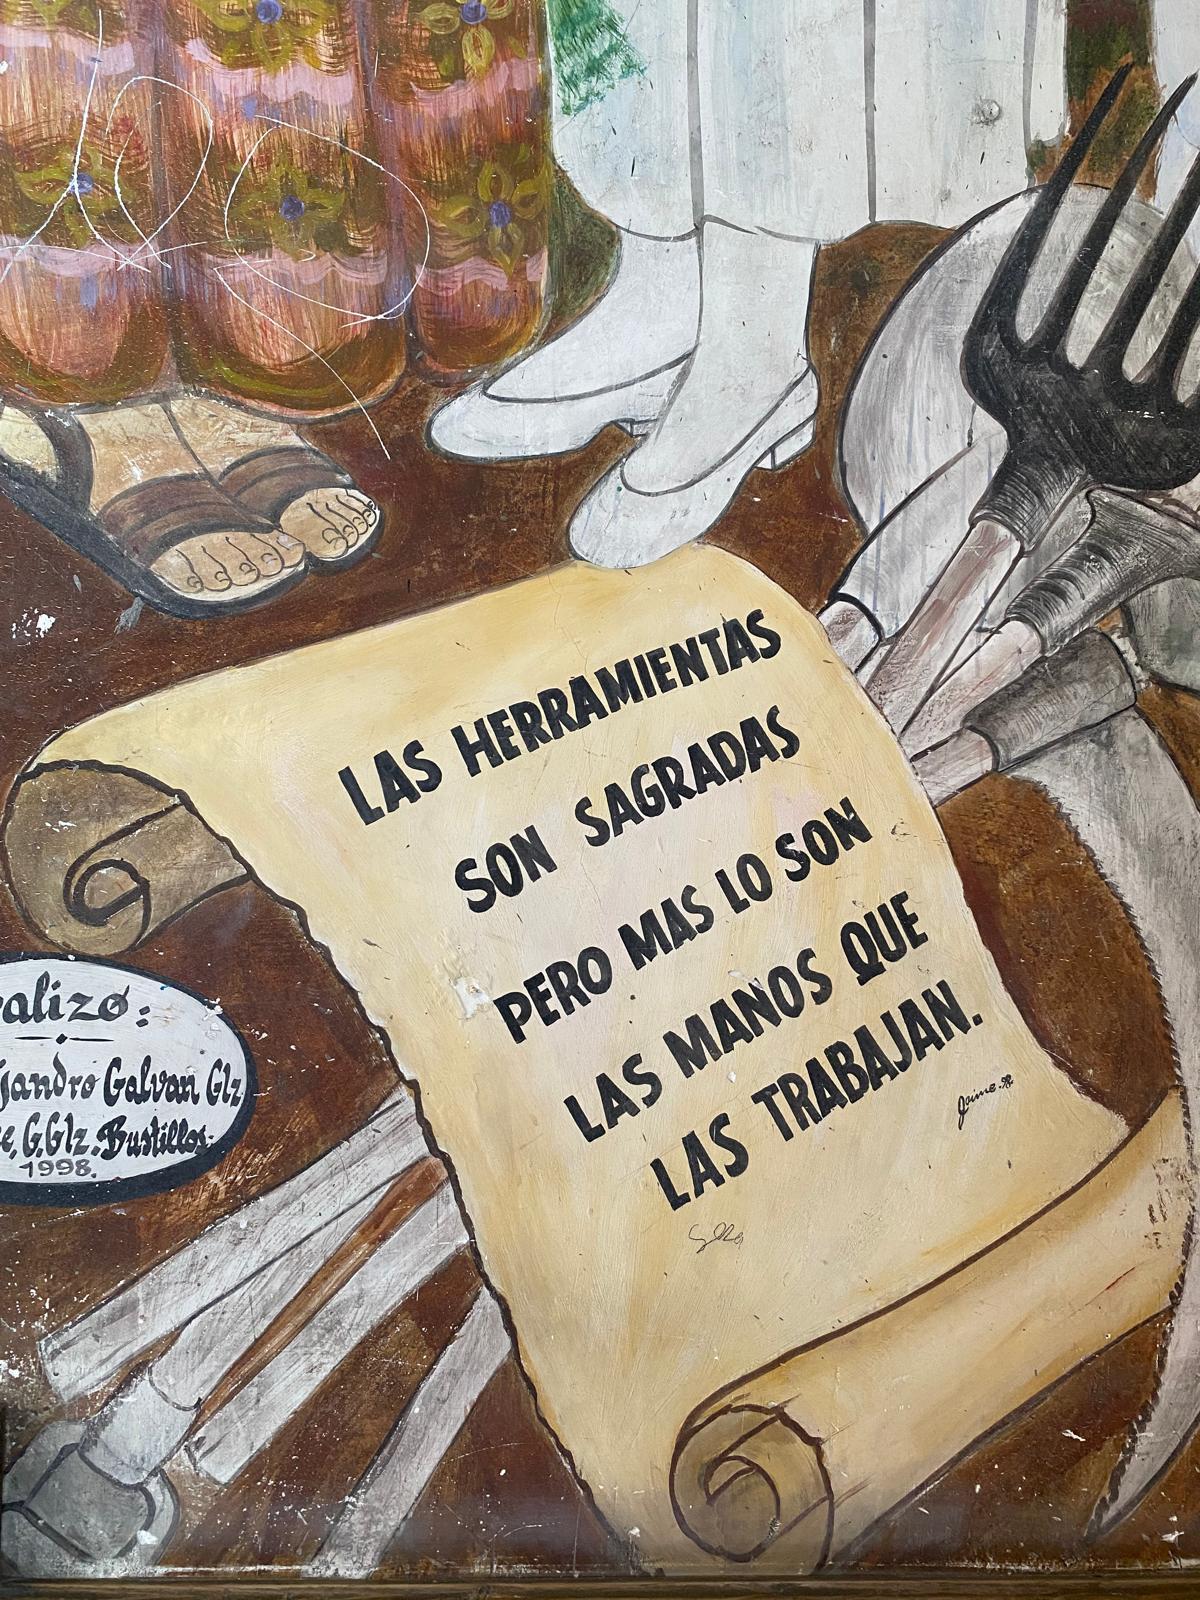 LAS HERRAMIENTAS
SON SAGRADAS
PERO MAS LO SON
LAS MANOS QUE
LAS TRABAJAN.
Jaime.98.
alizo:
jandro Galvan Glz
e, G.Glz.Bustillos.
1998.